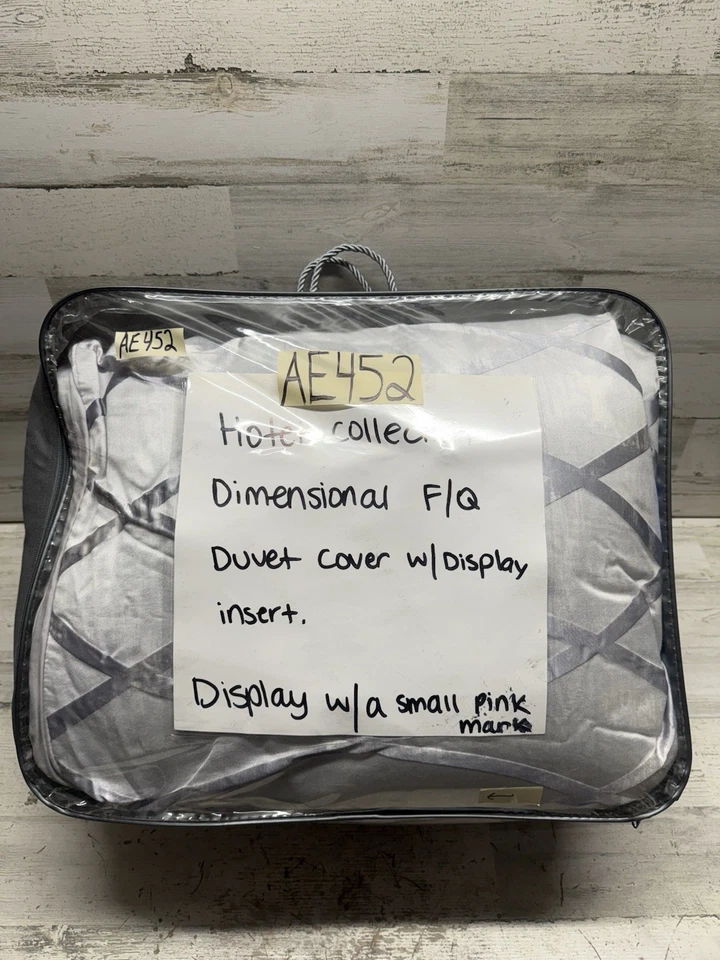 AE452
AE452
Hotel collec
Dimensional F/Q
Duvet cover w/Display
insert.
Display w/a small pink
mark
←